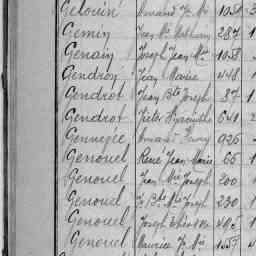 Gelouin Armand J. M. 1051 3
Gemin Jean Mie Mathurin 287 1
Genain Joseph Jean Mie 1058
Gendron Jean Marie 448 1
Gendrot Jean Bte Joseph 87 1
Gendrot Victor Hyacinthe 641 2
Gennegée Armand 926
Genouel René Jean Marie 65 1
Genouel Jean Mie Joseph 200
Genouel J. Bte Mie Joseph 230 1
Genouel Joseph 495 1
Genouel Maurice J. Mie 1557 4